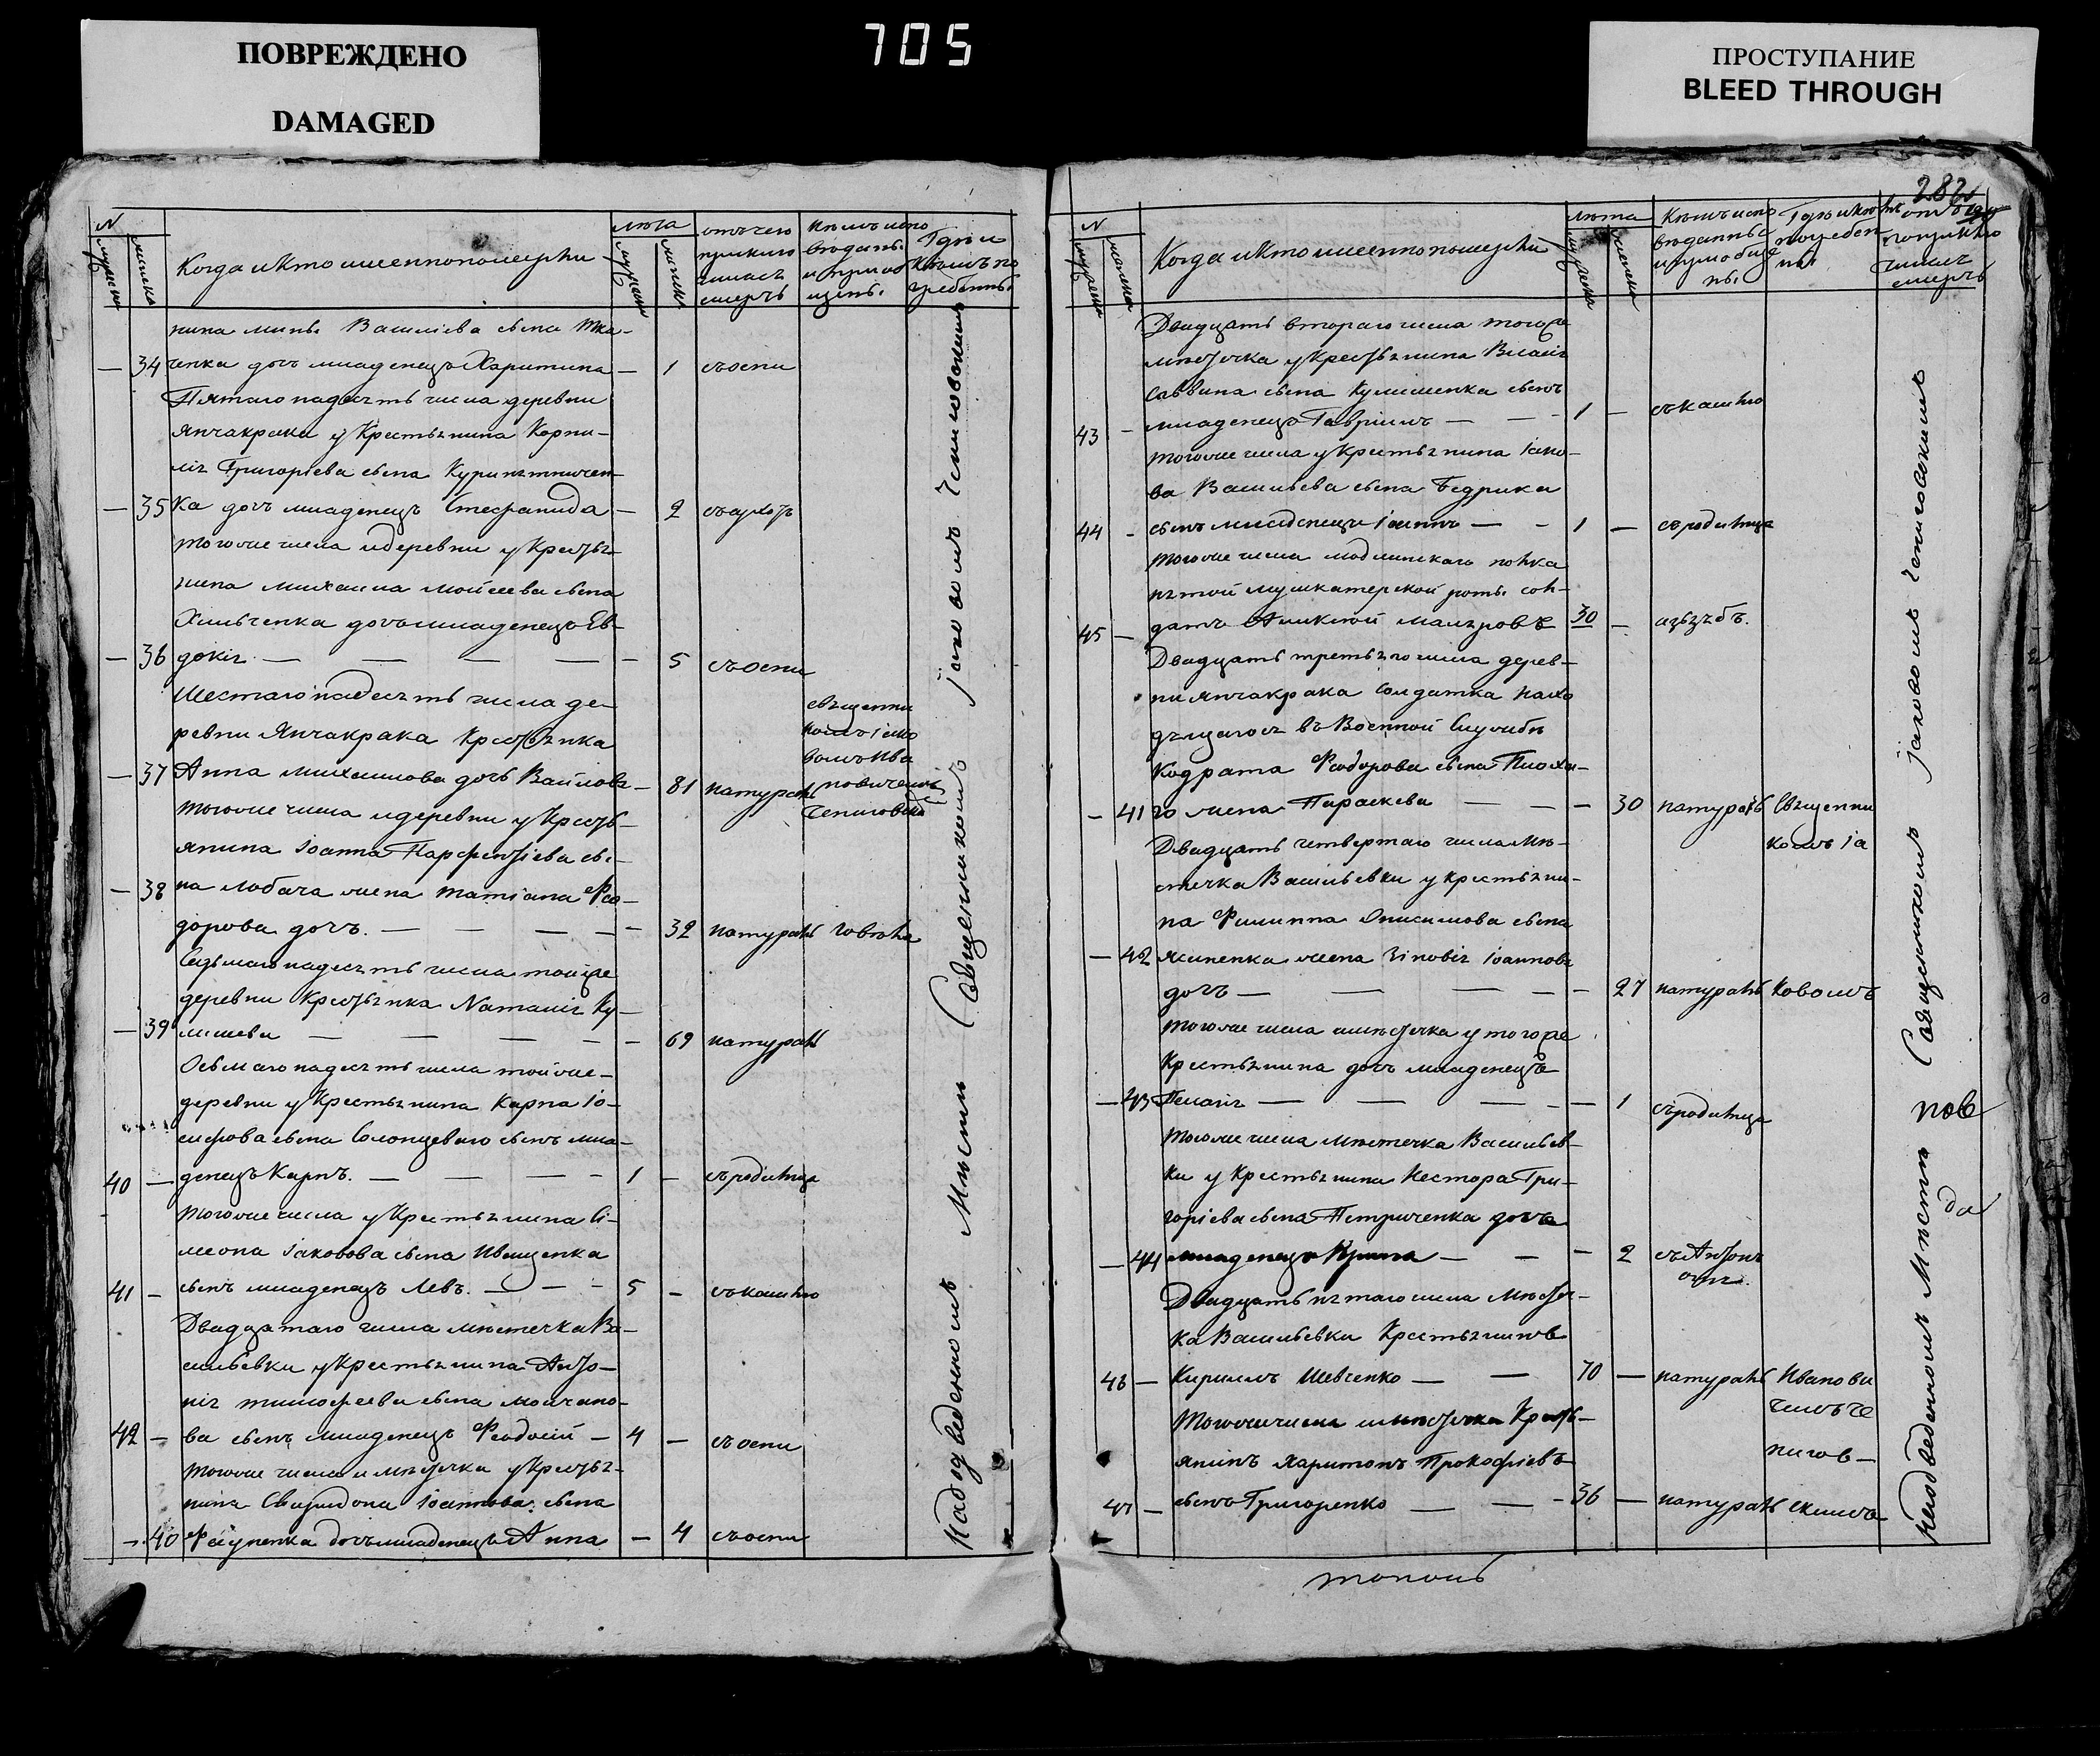 ПОВРЕЖДЕНО
DAMAGED
705
ПРОСТУПАНИЕ
BLEED THROUGH
N
мужеска
женска
Когда и кто именно померли
лѣта
мужеска
женска
отъ чего
приклю
чилась
смерть
Кѣмъ испо
вѣданы
и приоб
щены
Гдѣ и
Кѣмъ по
гребены
нина мины Василіева сына Тка-
— 34 ченка дочь младенецъ Харитина — 1 съоспи
Пятагонадесять числа деревни
Янчакрака у Крестьянина Корни-
лія Григоріева сына Курипятничен-
— 35 Ка дочь младенецъ Стефанида — 2
тогоже числа идеревни у Кресть-
нина михаила мойсеева сына
Хильченка дочь младенецъ Ев-
— 36 докія — — — — — 5 съоспи
Шестагонадесять числа де-
ревни Янчакрака Крестьянка
— 37 Анна михаилова дочь — 81 натураль
священни
комъ іяко
вомъ Ива
новичемъ
Чепиговски
тогоже числа идеревни у Кресть-
янина іоанна Парфентіева сы-
— 38 на лобача жена татіана Фео-
дорова дочь. — — — — — 32 натураль
Седьмагонадесять числа тойже
деревни Крестьянка Наталія Ку-
— 39 лишева — — — — — 69 натураль
Осьмагонадесять числа тойже-
деревни у Крестьянина Карпа іо-
сифова сына Солонцеваго сынъ мла-
40 — денецъ Карпъ. — — — — 1 — съродимца
тогоже числа у Крестьянина Си-
меона іаковова сына Иващенка
41 — сынъ младенецъ Левъ. — — — 5 — съкашлю
Двадцатаго числа мѣстечка Ва-
сильевки у Крестьянина Анто-
нія тимофеева сына молчано-
42 — ва сынъ младенецъ Феодосій — 4 — съоспи
тогоже числа и мѣстечка у Кресть-
нина Свиридона іоаннова сына
— 40 дочь младенецъ Анна — 4 съоспи
Надъ веденномъ Мѣстѣ Священникомъ іаковомъ Чепиговскимъ
282
N
мужеска
женска
Когда и кто именно померли
лѣта
мужеска
женска
Кѣмъ испо
вѣданны
и приобще
ны
Гдѣ и кѣмъ
погребен
ны
приклю
чилась
смерть
Двадцать втораго числа тогоже
мѣстечка у Крестьянина Власія
Саввина сына Кулишенка сынъ
43 — младенецъ Гавріилъ — — — 1 — съкашлю
тогоже числа у Крестьянина іако-
ва Васильева сына Бедрика
44 — сынъ младенецъ іоаннъ — — 1 — съродимца
тогоже числа модлинскаго полка
пятой мушкатерской роты сол-
45 — датъ 30 —
Двадцать третьяго числа дерев-
ни янчакрака Солдатка нахо
дящагося въ Военной Службѣ
Кодрата Феодорова сына
— 41 го жена Параскева — — — 30 натураль Священни
комъ іа
Двадцать четвертаго числа мѣ-
стечка Васильевки у крестьяни-
на Филиппа Онисимова сына
— 42 жена Зіновія іоаннова
дочь — — — — — 27 натураль Ковомъ
тогоже числа имѣстечка у тогоже
Крестьянина дочь младенецъ
— 43 Пелагія — — — — — 1 съродимца
тогоже числа мѣстечка Васильев-
ки у Крестьянина Нестора Гри-
горіева сына Петриченка дочь
— 44 младенецъ Ирина — — — 2 съ Антон
огня.
Двадцать пятаго числа мѣстеч-
ка Васильевки Крестьянинъ
46 — Кириллъ Шевченко — — 70 — натураль Иванови
чемъ Че
пигов-
тогоже числа имѣстечка Кресть-
янинъ Харитонъ Прокофіевъ
47 — сынъ Григоренко — — — 36 — натураль скимъ
Мѣстѣ Священникомъ іаковомъ Чепиговскимъ